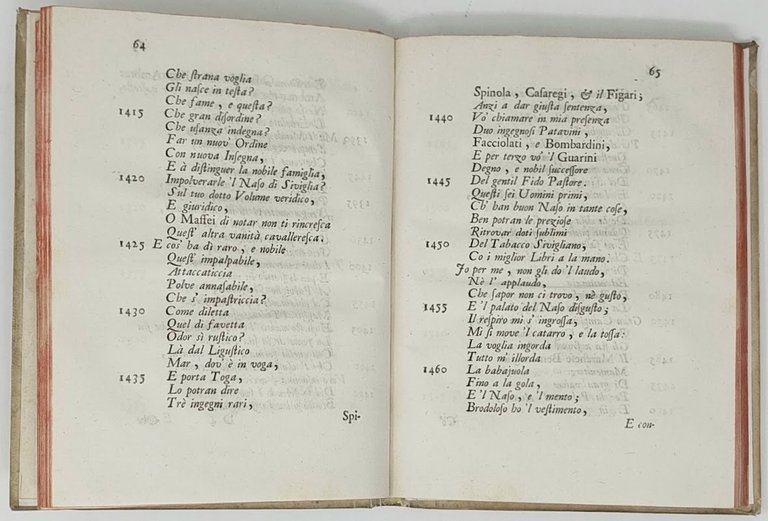 64
Che ſtrana voglia
Gli naſce in teſta?
Che fame, e queſta?
1415 Che gran diſordine?
Che uſanza indegna?
Far un nuov' Ordine
Con nuova Inſegna,
E à diſtinguer la nobile famiglia,
1420 Impolverarle 'l Naſo di Siviglia?
Sul tuo dotto Volume veridico,
E giuridico,
O Maffei di notar non ti rincreſca
Queſt' altra vanità cavallereſca.
1425 E cos' ha di raro, e nobile
Queſt' impalpabile,
Attaccaticcia
Polve annaſabile,
Che s' impaſtriccia?
1430 Come diletta
Quel di favetta
Odor sì ruſtico?
Là dal Liguſtico
Mar, dov' è in voga,
1435 E porta Toga,
Lo potran dire
Trè ingegni rari,
Spi-
65
Spinola, Caſaregi, & il Figari;
Anzi a dar giuſta ſentenza,
1440 Vo' chiamare in mia preſenza
Duo ingegnoſi Patavini,
Facciolati, e Bombardini,
E per terzo vo' 'l Guarini
Degno, e nobil ſucceſſore
1445 Del gentil Fido Paſtore.
Queſti ſei Uomini primi,
Ch' han buon Naſo in tante coſe,
Ben potran le prezioſe
Ritrovar doti ſublimi
1450 Del Tabacco Sivigliano,
Co i miglior Libri a la mano.
Jo per me, non gli do 'l laudo,
Nè l' applaudo,
Che ſapor non ci trovo, nè guſto,
1455 E 'l palato del Naſo diſguſto;
Il reſpiro mi s' ingroſſa,
Mi ſi move 'l catarro, e la toſſa:
La voglia ingorda
Tutto m' illorda
1460 La babajuola
Fino a la gola,
E 'l Naſo, e 'l mento;
Brodoloſo ho 'l veſtimento,
E con-